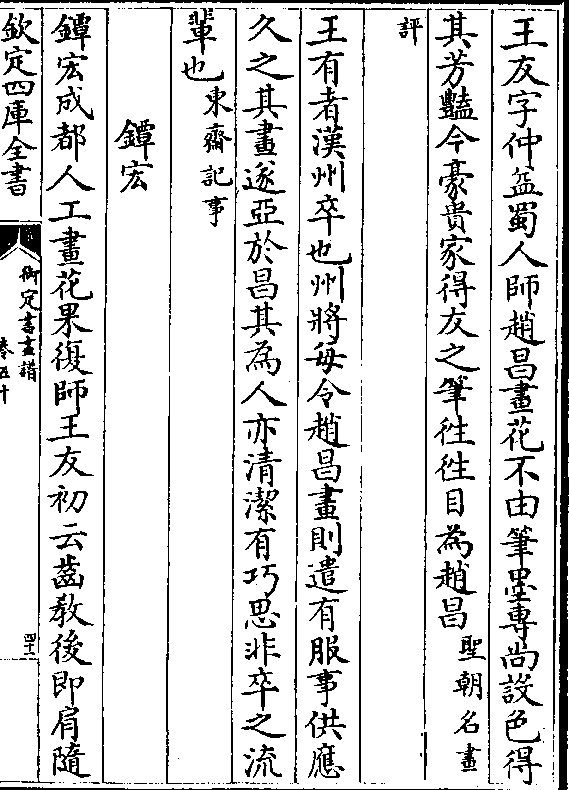 王友字仲益蜀人師趙昌畫花不由筆墨專尚設色得
其芳豔今豪貴家得友之筆徃徃目為趙昌聖朝名畫
評
王有者漢州卒也州將每令趙昌畫則遣有服事供應
久之其畫遂亞於昌其為人亦清潔有巧思非卒之流
輩也東齋記事
鐔宏
鐔宏成都人工畫花果復師王友初云齒敎後即肩隨
欽定四庫全書
御定書畫譜
卷五十